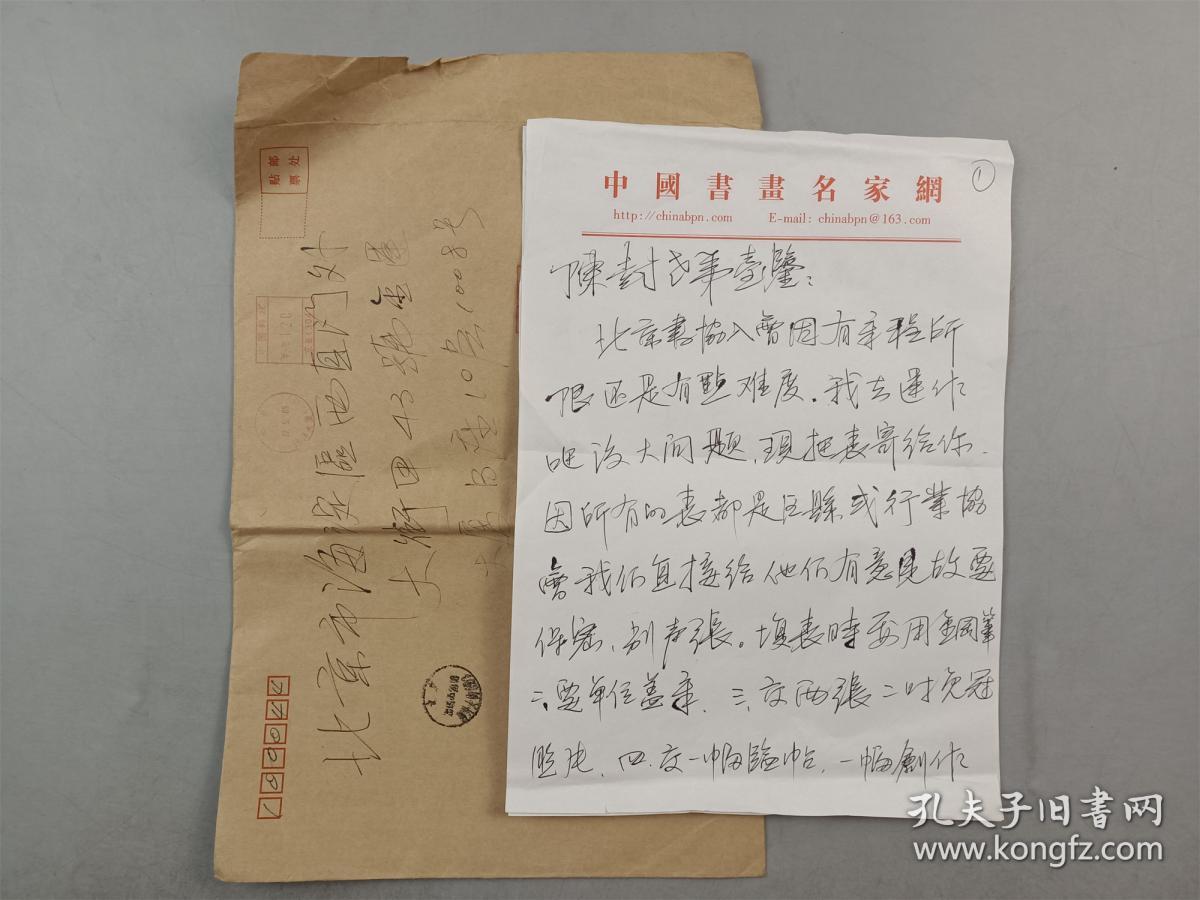 中國書畫名家網
http://chinabpn.com E-mail: chinabpn@163.com
①
陳封老弟臺鑒:
北京書協入會因有章程所
限还是有點难度.我去運作
吧没大问题,現把表寄给你.
因所有的表都是区縣或行業協
會我们直接给他们有意見故要
保密,别声張。填表時要用鋼筆
二、要單位盖章,三、交两張二吋免冠
照片,四.交一幅臨帖,一幅創作
北京市海淀區西直门外
大街甲43號金運
大厦B座10层1008号
100044
貼郵
票处
孔夫子旧书网
www.kongfz.com